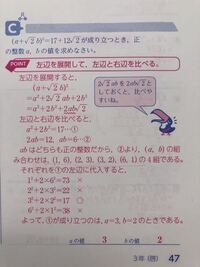 C
(a+√2 b)²=17+12√2が成り立つとき、正
の整数a、bの値を求めなさい。
POINT 左辺を展開して、左辺と右辺を比べる。
左辺を展開すると、
(a+√2 b)²
=a²+2√2 ab+2b²
=a²+2b²+2ab√2
2√2 abを2ab√2と
しておくと、比べや
すいね。
左辺と右辺を比べると、
a²+2b²=17…①
2ab=12, ab=6…②
abはどちらも正の整数だから、②より、(a, b)の組
み合わせは、(1, 6), (2, 3), (3, 2), (6, 1)の4組である。
それぞれを①の左辺に代入すると、
1²+2×6²=73 ×
2²+2×3²=22 ×
3²+2×2²=17 ○
6²+2×1²=38 ×
よって、①が成り立つのは、a=3, b=2のときである。
aの値 3 bの値 2
3年(啓) 47